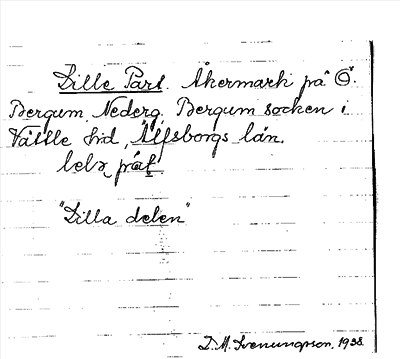 Lille Part. Åkermark på Ö.
Bergum Nederg. Bergum socken i
Vättle hd, Älfsborgs län.
"Lilla delen"
D. M. Svenungsson. 1938